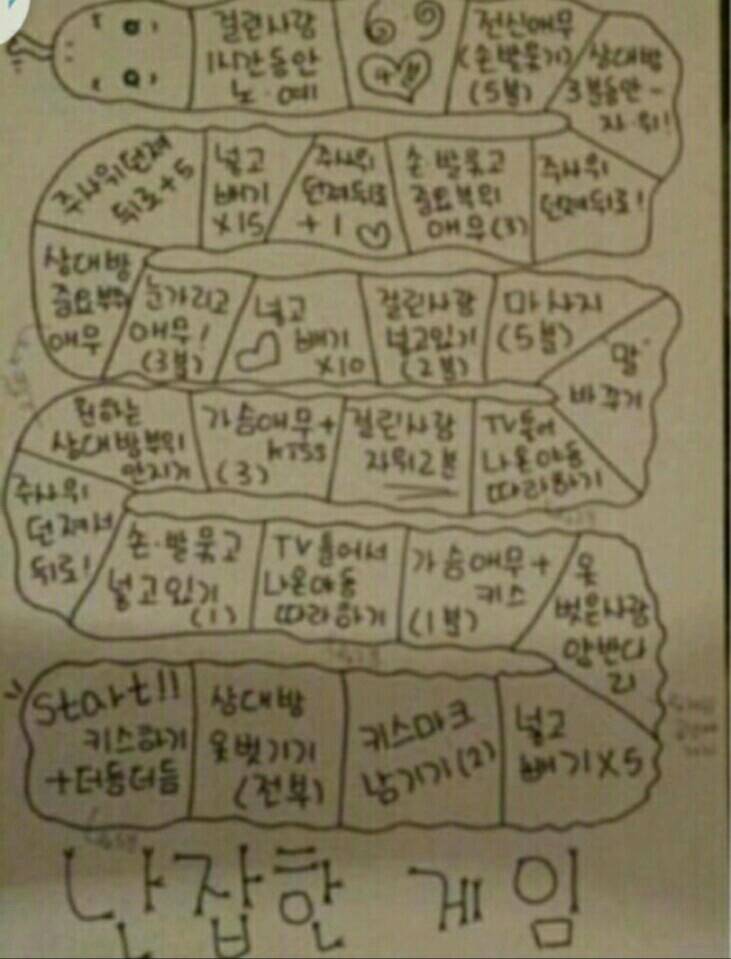 걸린사람
1시간동안
노·예
69
전신애무
(손발묶기)
(5분)
상대방
3분동안-
자·위!
주사위던져
뒤로+5
넣고
빼기
X15
주사위
던져뒤로
+1♡
손·발묶고
중요부위
애무(3)
주사위
던져뒤로!
상대방
중요부위
애무
눈가리고
애무!
(3분)
넣고
빼기
X10
걸린사람
넣고있기
(2분)
마사지
(5분)
"말"
바꾸기
원하는
상대방부위
만지기
가슴애무+
kiss
(3)
걸린사람
자위2분
TV틀어
나온야동
따라하기
주사위
던져서
뒤로!
손·발묶고
넣고있기
(1)
TV틀어서
나온야동
따라하기
가슴애무+
키스
(1분)
옷
벗은사람
start!!
키스하기
+더듬더듬
상대방
옷벗기기
(전부)
키스마크
남기기(2)
넣고
빼기X5
난잡한 게임